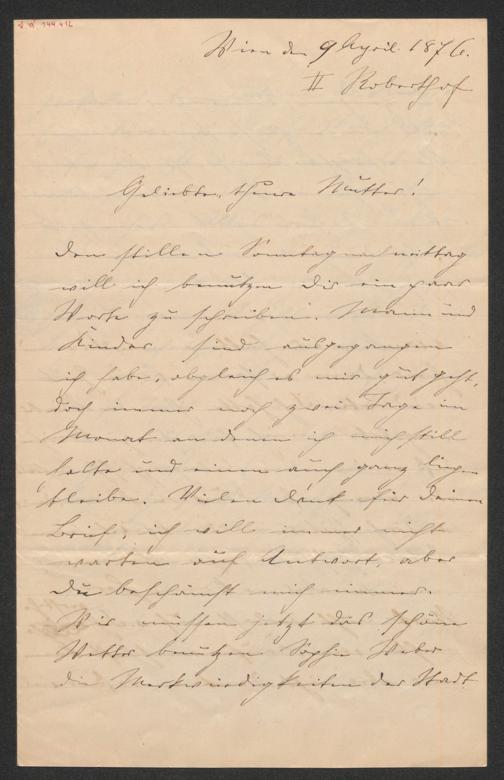 Wien den 9 April. 1876.
II Roberthof
Geliebte, theure Mutter!
Den stillen Sonntagnachmittag
will ich benützen Dir ein paar
Worte zu schreiben. Mann und
Kinder sind ausgegangen
ich habe, obgleich es mir gut geht,
doch immer noch zwei Tage im
Monat an denen ich mich still
halte und einen auch ganz liegen
bleibe. Vielen Dank für Deinen
Brief, ich will immer nicht
warten auf Antwort, aber
Du beschämst mich immer.
Wir müssen jetzt das schöne
Wetter benützen Sophie Weber
die Merkwürdigkeiten der Stadt